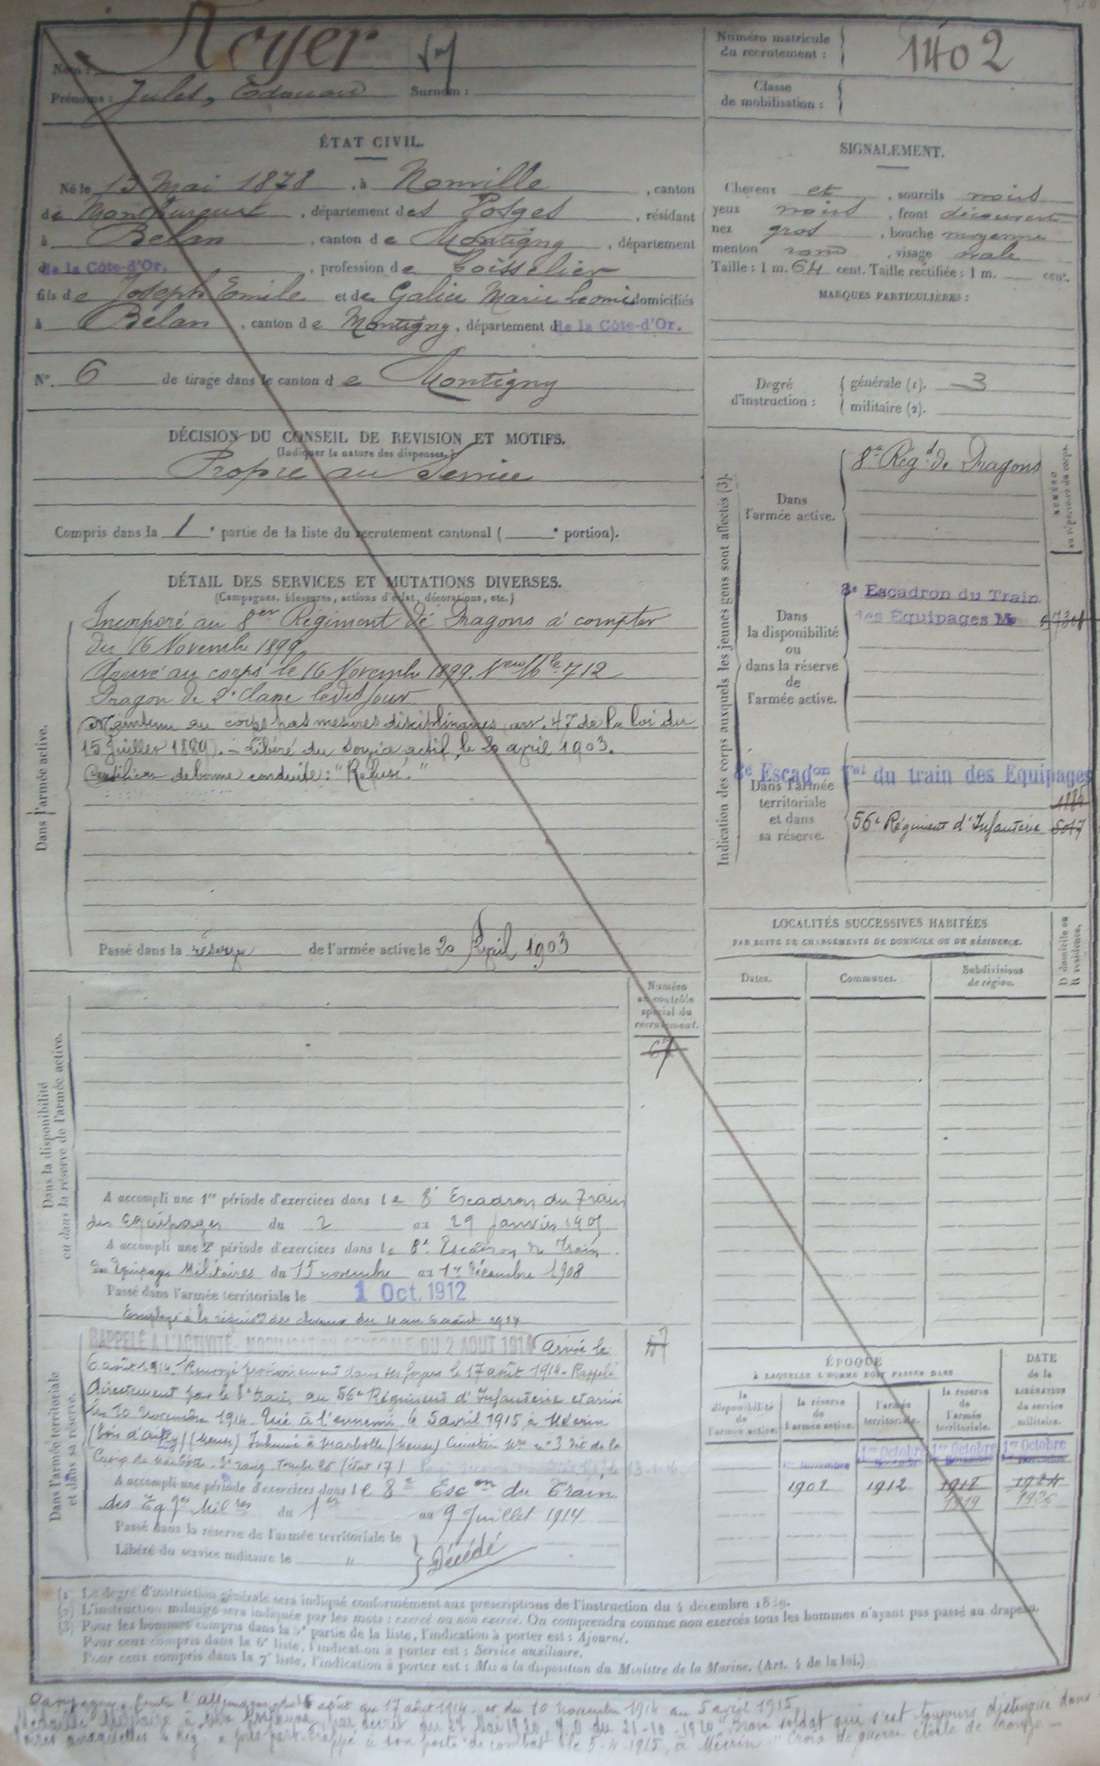 Nom : Royer
Prénoms : Jules, Edouard Surnom :
Numéro matricule du recrutement : 1402
Classe de mobilisation :
ÉTAT CIVIL.
Né le 15 Mai 1878, à Nonville, canton
de Monthureux, département des Vosges, résidant
à Belan, canton de Montigny, département
de la Côte-d'Or., profession de Boisselier
fils de Joseph Emile et de Galice Marie domiciliés
à Belan, canton de Montigny, département de la Côte-d'Or.
N° 6 de tirage dans le canton de Montigny
SIGNALEMENT.
Cheveux et, sourcils noirs
yeux noirs, front découvert
nez gros, bouche moyenne
menton rond, visage ovale
Taille : 1 m. 64 cent. Taille rectifiée : 1 m. cent.
MARQUES PARTICULIÈRES :
Degré d'instruction : générale (1). 3
militaire (2).
DÉCISION DU CONSEIL DE REVISION ET MOTIFS.
(Indiquer la nature des dispenses.)
Propre au Service
Compris dans la 1e partie de la liste du recrutement cantonal ( e portion).
DÉTAIL DES SERVICES ET MUTATIONS DIVERSES.
(Campagnes, blessures, actions d'éclat, décorations, etc.)
Dans l'armée active.
Incorporé au 8e Régiment de Dragons à compter
du 16 Novembre 1899
Arrivé au corps le 16 Novembre 1899. 712
Dragon de 2e classe le dit jour
Maintenu au corps par mesures disciplinaires, art. 47 de la loi du
15 juillet 1889. - Libéré du service actif le 20 avril 1903.
Certificat de bonne conduite : "Refusé."
Passé dans la réserve de l'armée active le 20 April 1903
Indication des corps auxquels les jeunes gens sont affectés (3).
NUMÉRO au répertoire du corps.
Dans l'armée active.
8e Régt de Dragons
Dans la disponibilité ou dans la réserve de l'armée active.
8e Escadron du Train
des Equipages Mre
Dans l'armée territoriale et dans sa réserve.
8e Escadon Tal du train des Equipages
56e Régiment d'Infanterie
LOCALITÉS SUCCESSIVES HABITÉES
PAR SUITE DE CHANGEMENTS DE DOMICILE OU DE RÉSIDENCE.
Dates. Communes. Subdivisions de région. D domicile ou R résidence.
Dans la disponibilité ou dans la réserve de l'armée active.
Numéro au contrôle spécial du recrutement.
A accompli une 1re période d'exercices dans le 8e Escadron du Train
des Equipages du 2 au 29 janvier
A accompli une 2e période d'exercices dans le 8e Escadron du Train
des Equipages Militaires du 15 novembre au 1er Décembre 1908
Passé dans l'armée territoriale le 1 Oct. 1912
Dans l'armée territoriale et dans sa réserve.
RAPPELÉ A L'ACTIVITÉ MOBILISATION GÉNÉRALE DU 2 AOUT 1914 Arrivé le
6 août 1914. Renvoyé provisoirement dans ses foyers le 17 août 1914. Rappelé
directement par le 8e train, au 56e Régiment d'Infanterie et arrivé
le 10 Novembre 1914. Tué à l'ennemi le 5 avril 1915 à Mécrin
(bois d'Ailly) (Meuse) Inhumé à Marbotte (Meuse) Cimetière n° 3 dit de la
A accompli une période d'exercices dans le 8e Escon du Train
des Eqges Mil res du 1er au 9 Juillet 1914
Passé dans la réserve de l'armée territoriale le
Libéré du service militaire le "
Décédé
ÉPOQUE
À LAQUELLE L'HOMME DOIT PASSER DANS
la disponibilité de l'armée active. la réserve de l'armée active. l'armée territoriale. la réserve de l'armée territoriale.
DATE de la LIBÉRATION du service militaire.
1er Octobre 1er Octobre 1er Octobre
1902 1912 1918 1924
1919
(1) Le degré d'instruction générale sera indiqué conformément aux prescriptions de l'instruction du 4 décembre 1889.
(2) L'instruction militaire sera indiquée par les mots : exercé ou non exercé. On comprendra comme non exercés tous les hommes n'ayant pas passé au drapeau.
(3) Pour les hommes compris dans la 5e partie de la liste, l'indication à porter est : Ajourné.
Pour ceux compris dans la 6e liste, l'indication à porter est : Service auxiliaire.
Pour ceux compris dans la 7e liste, l'indication à porter est : Mis à la disposition du Ministre de la Marine. (Art. 4 de la loi.)
Campagne contre l'Allemagne août au 17 août 1914 et du 10 novembre 1914 au 5 avril 1915
Médaille Militaire à titre posthume, par décret du Mai 1920. J.O du 21-10-1920 "Brave soldat qui s'est toujours distingué dans
à son poste de combat le 5-4-1915, à Mécrin" Croix de guerre étoile de bronze -